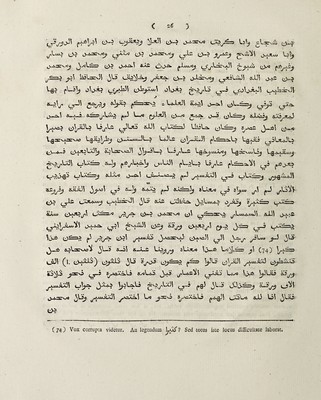 ( ٦٤ )
بن شجاع وابا كريب محمد بن العلا ويعقوب بن ابراهيم الدورقي
وابا سعيد الاشج وعمرو بن علي ومحمد بن مثنى ومحمد بن بشار
وغيرهم من شيوخ البخاري ومسلم حدث عنه احمد بن كامل ومحمد
بن عبد الله الشافعي ومخلد بن جعفر وخلايف قال الحافظ ابو بكر
الخطيب البغدادي في تاريخ بغداد استوطن الطبري بغداد واقام بها
حتى توفي وكان احد ايمة العلماء يحكم بقوله ويرجع الى رايه
لمعرفته وفضله وكان قد جمع من العلوم ما لم يشاركه فيه احد
من اهل عصره وكان حافظا لكتاب الله تعالى عارفا بالقران بصيرا
بالمعاني فقيها باحكام القران عالما بالسنن وطرقها صحيحها
وسقيمها وناسخها ومنسوخها عارفا باقوال الصحابة والتابعين فمن
بعدهم في الاحكام عارفا بايام الناس واخبارهم وله كتاب التاريخ
المشهور وكتاب في التفسير لم يصنف احد مثله وكتاب تهذيب
الاثار لم ار سواه في معناه ولكنه لم يتمه وله في اصول الفقه وفروعه
كتب كثيرة وتفرد بمسايل حفظت عنه قال الخطيب وسمعت علي بن
عبيد الله السمسار يحكي ان محمد بن جرير مكث اربعين سنة
يكتب في كل يوم اربعين ورقة وعن الشيخ ابي حامد الاسفرايني
قال لو سافر رجل الى الصين ليحصل تفسير ابن جرير لم يكن هذا
كثيرا او كلاما هذا معناه وروينا عنه انه قال لاصحابه هل
تنشطون لتفسير القران قالوا كم يكون قدره قال ثلثون الف
ورقة فقالوا هذا مما تفنى الاعمار قبل تمامه فاختصره في نحو ثلاثة
الاف ورقة وكذلك قال لهم في التاريخ فاجابوا بمثل جواب التفسير
فقال انا لله ماتت الهمم فاختصره في نحو ما اختصر التفسير وقال محمد
بن
(72) Vox corrupta videtur. An legendum كثيرا? Sed totus iste locus difficultate laborat.